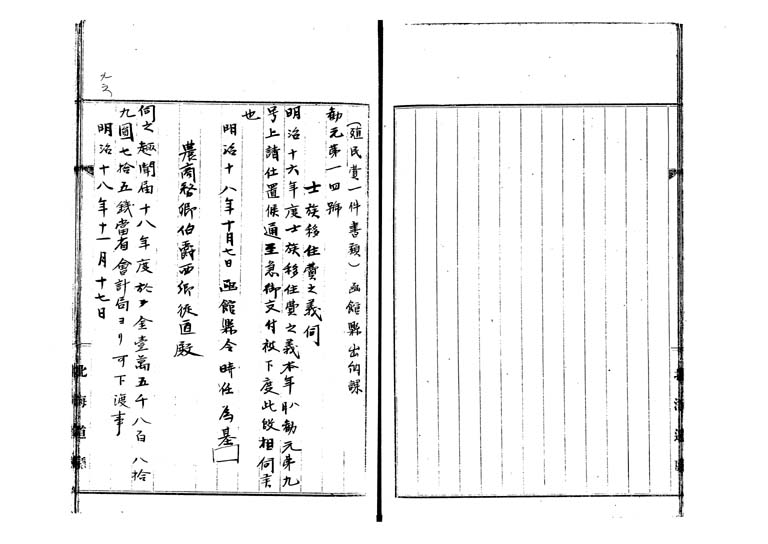 (殖民費一件書類) 函館縣出納課
勧元第一四號
士族移住費之義伺
明治十六年度士族移住費之義本年八勧元第九
号上請仕置候通至急御交付被下度此段相伺
也
明治十八年十月七日 函館縣令時任為基
農商務卿伯爵西郷従道殿
伺之趣聞届十八年度於テ金壹萬五千八百八拾
九圓七拾五銭當省會計局ヨリ可下渡事
明治十八年十一月十七日
北海道